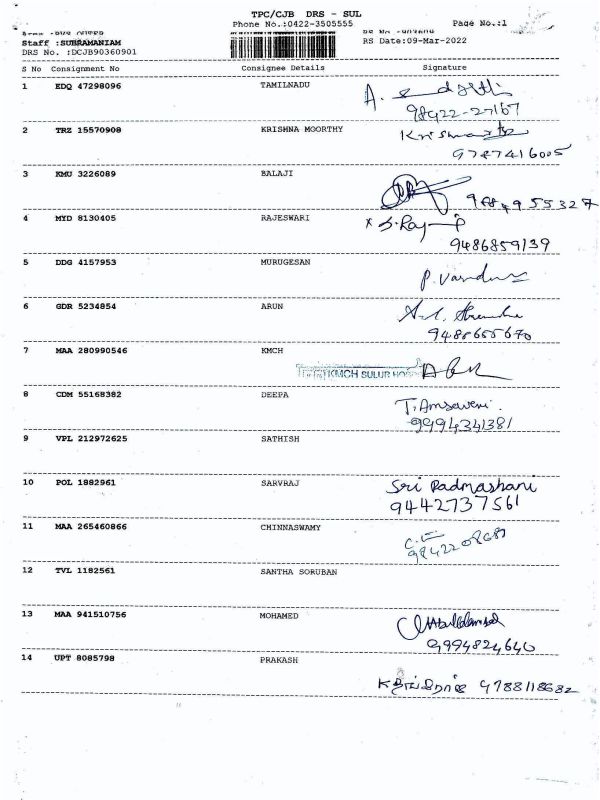 TPC/CJB DRS - SUL
Phone No.:0422-3505555 Page No.:1
Staff :SUBRAMANIAM RS Date:09-Mar-2022
DRS No. :DCJB90360901
S No Consignment No Consignee Details Signature
1 EDQ 47298096 TAMILNADU
98422-27167
2 TRZ 15570908 KRISHNA MOORTHY
9787416005
3 KMU 3226089 BALAJI
4 MYD 8130405 RAJESWARI
9486859139
5 DDG 4157953 MURUGESAN
6 GDR 5234854 ARUN
9488655670
7 MAA 280990546 KMCH KMCH SULUR
8 CDM 55168382 DEEPA T. Amsaveni.
9994341381
9 VPL 212972625 SATHISH
10 POL 1882961 SARVRAJ Sri Padmashani
9442737561
11 MAA 265460866 CHINNASWAMY
12 TVL 1182561 SANTHA SORUBAN
13 MAA 941510756 MOHAMED
9994824640
14 UPT 8085798 PRAKASH